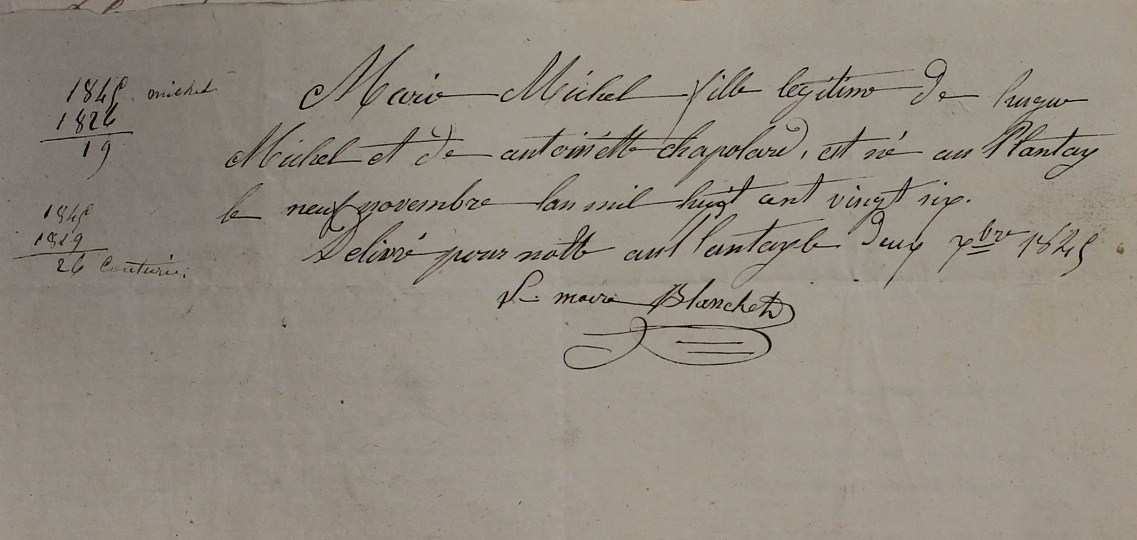 1845 michel
1826
19
1845
1819
26 Couturier
Marie Michel fille legitime de
Michel et de antoinette chapolard, est né au Plantay
le neuf novembre lan mil huit cent vingt six.
Delivré pour notte au Plantay le deux 7bre 1845
Le maire Blanchet